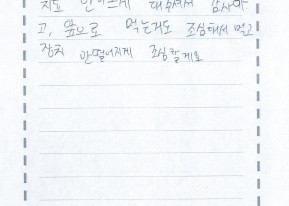 치료 안아프게 해주셔서 감사하
고, 앞으로 먹는거도 조심해서 먹고
장치 안떨어지게 조심할게요